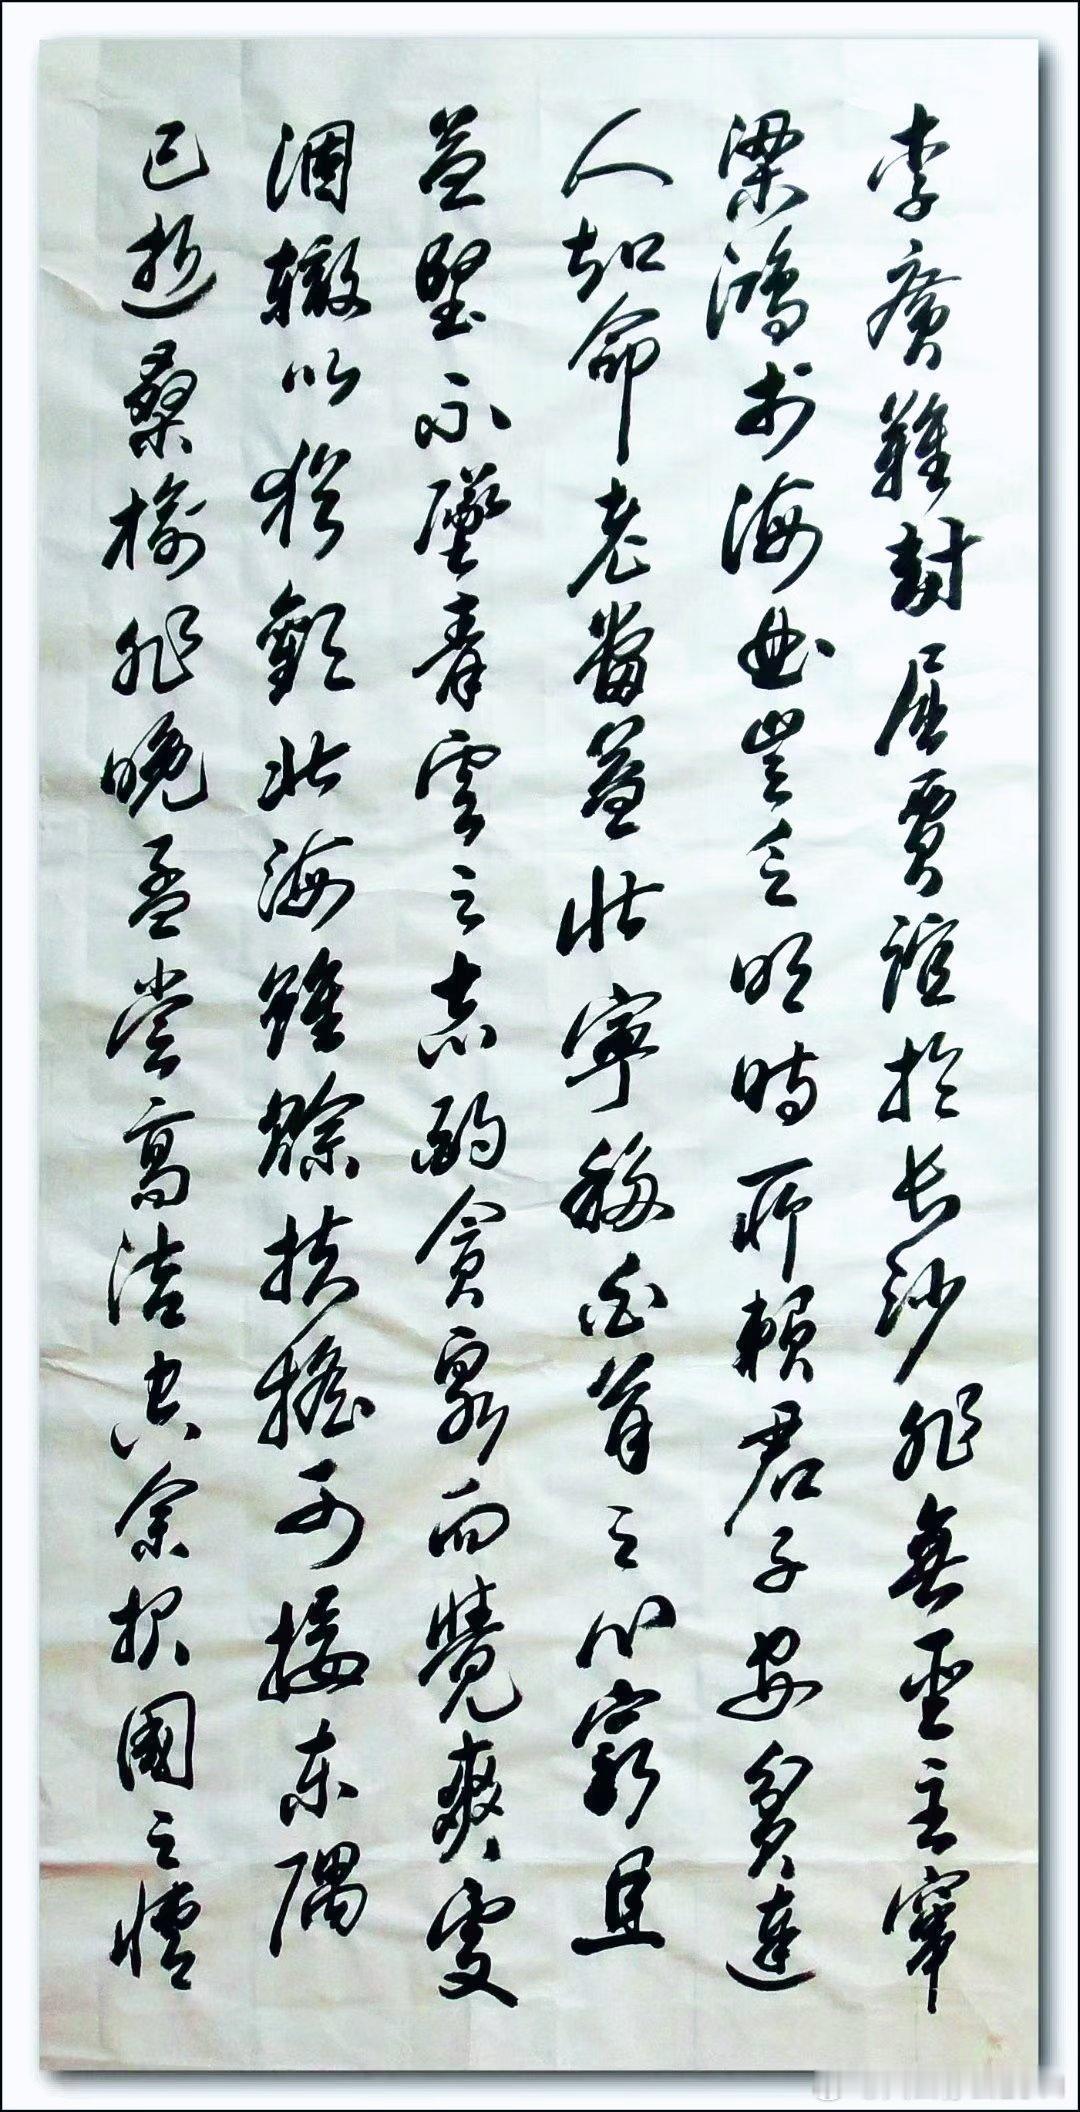 李廣難封屈賈誼於长沙非無聖主竄
梁鴻於海曲豈乏明時所賴君子安貧達
人知命老當益壯寧移白首之心窮且
益堅不墜青雲之志酌貪泉而覺爽處
涸轍以猶歡北海雖賒扶搖可接東隅
已逝桑榆非晚孟尝高洁空余报國之情